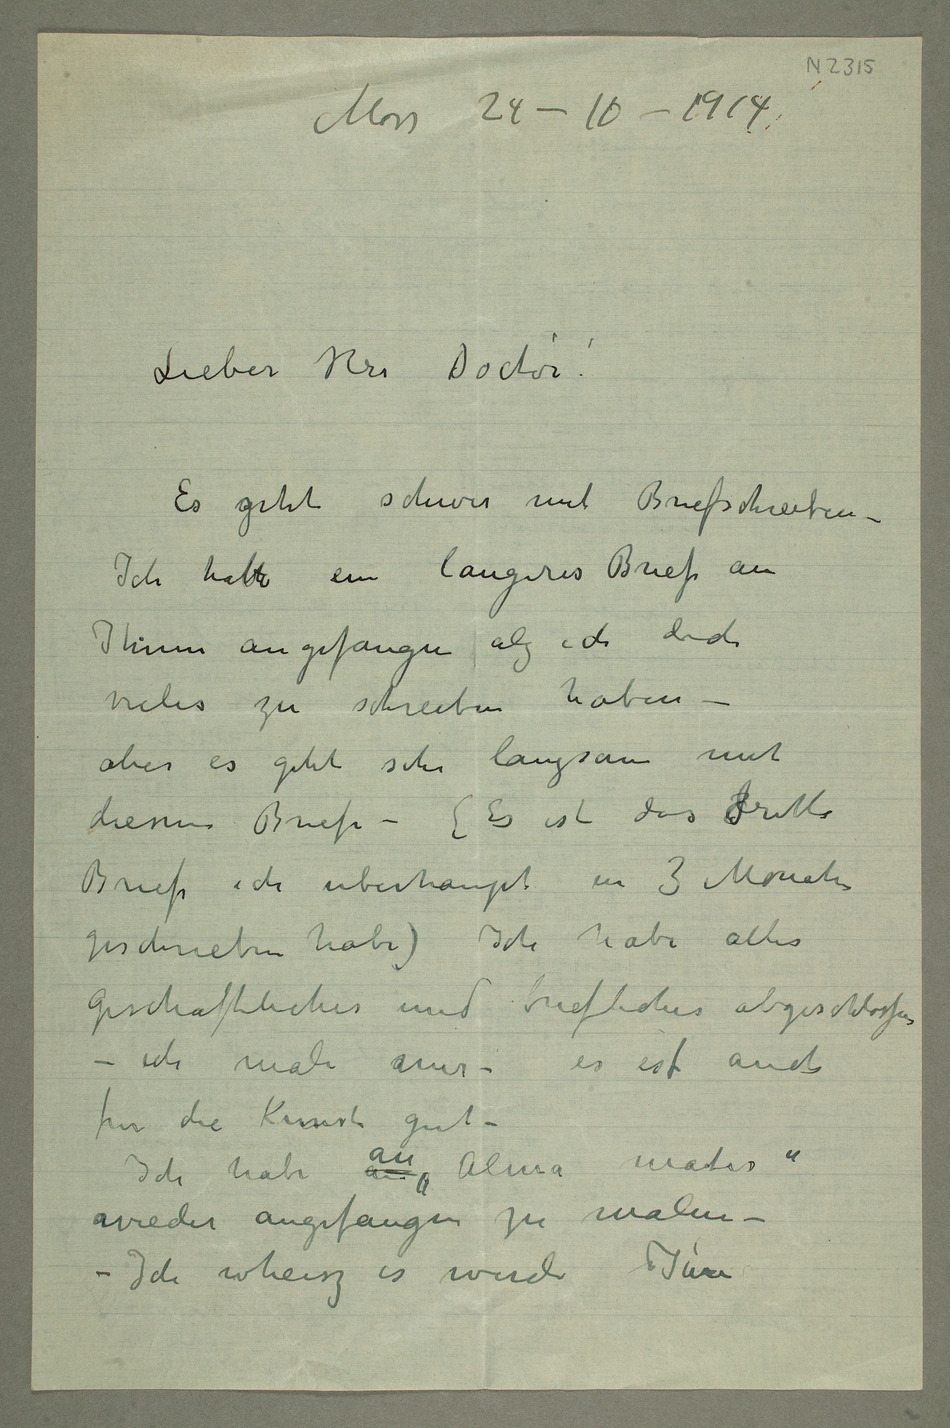 N 2315
Moss 24 – 10 – 1914.
Lieber Her Doctor!
Es geht schwer mit Briefschreiben –
Ich hatte ein langeres Brief an
Ihnen angefangen alz ich doch
vieles zu schreiben haben –
aber es geht sehr langsam mit
diesem Brief – (Es ist das dritte
Brief ich uberhaupt in 3 Monate
geschrieben habe) Ich habe alles
geschaftliches und briefliches abgeschlossen
– ich male nur – es ist auch
fur die Kunst gut –
Ich habe an „Alma mater“
wieder angefangen zu malen –
– Ich wheisz es werde Ihnen